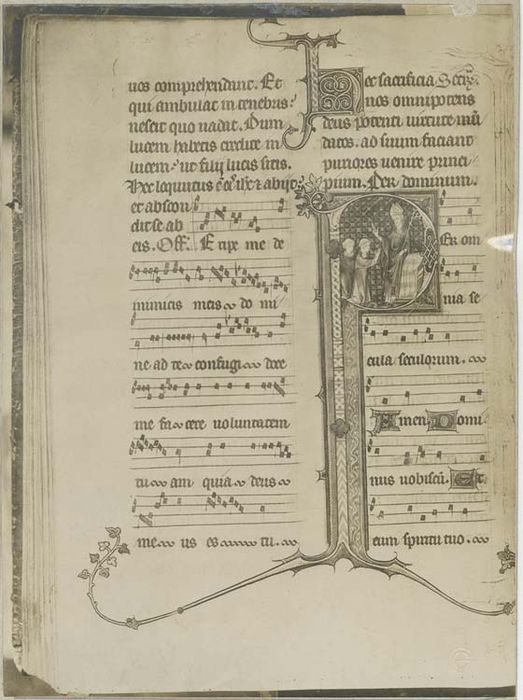 uos comprehendant. Et
qui ambulat in tenebris:
nescit quo uadat. Dum
lucem habetis credite in
lucem: ut filij lucis sitis.
Hec locutus ē ih̄c ⁊ abijt:
et abscon
dit se ab
eis. Off. Eripe me de
inimicis meis do mi
ne ad te confugi doce
me fa cere uoluntatem
tu am quia deus
me us es tu.
Hec sacrificia
nos omnipotens
deus potenti uirtute mū
datos. ad suum faciant
puriores uenire princi
pium. Per dominum.
Per om
nia se
cula seculorum.
Amen. Domi
nus uobiscū. Et
cum spiritu tuo.